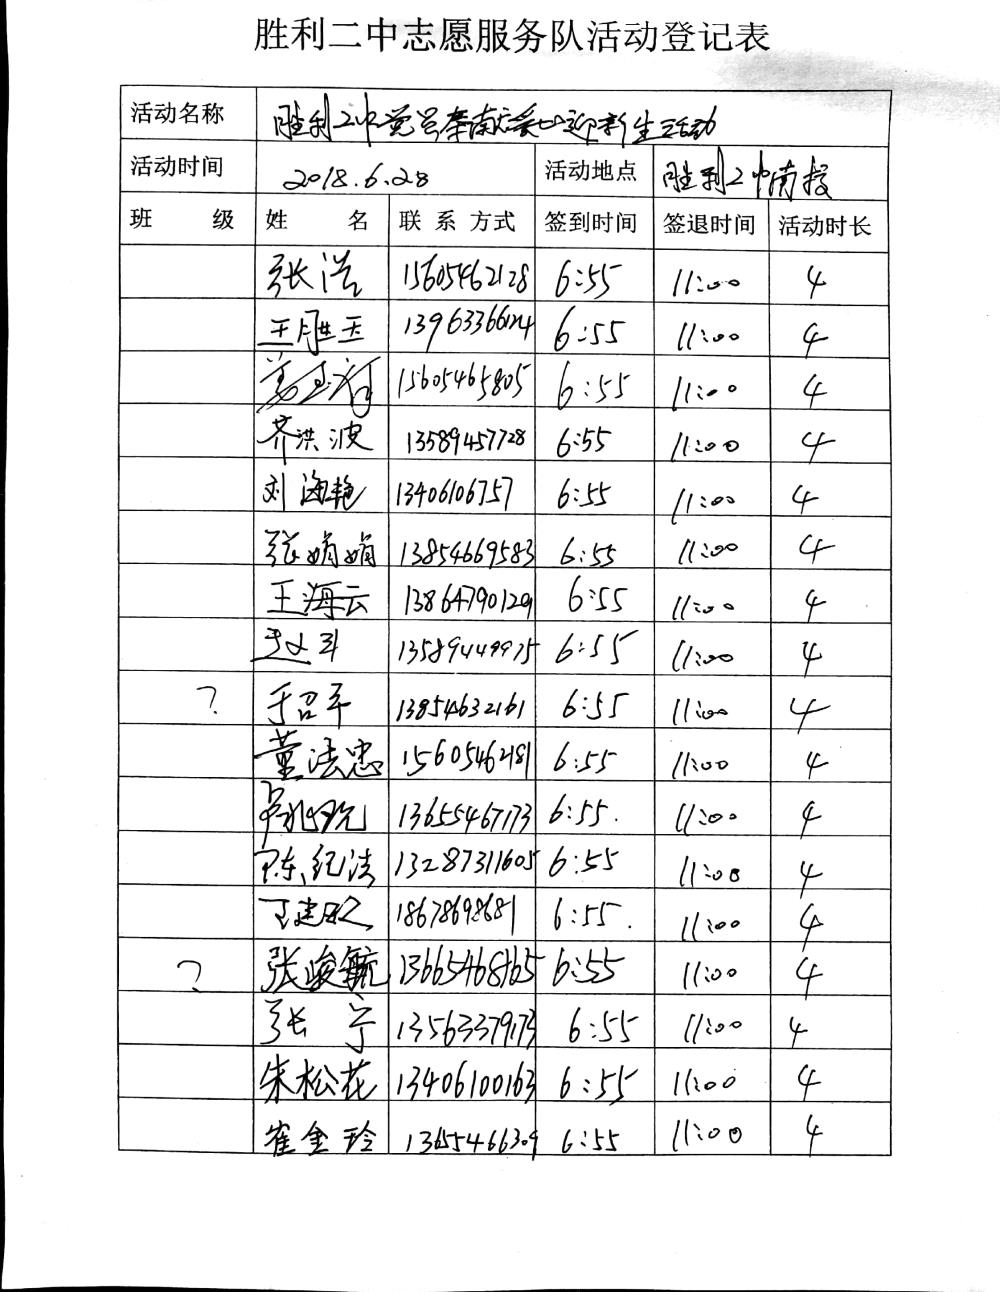 胜利二中志愿服务队活动登记表
活动名称 胜利二中党员 迎新生活动
活动时间 2018.6.28 活动地点 胜利二中南校
班 级 姓 名 联系方式 签到时间 签退时间 活动时长
张浩 15605462128 6:55 11:00 4
王胜玉 6:55 11:00 4
15605465805 6:55 11:00 4
齐洪波 13589457728 6:55 11:00 4
刘海艳 13406106757 6:55 11:00 4
张娟娟 13854669583 6:55 11:00 4
王海云 13864790129 6:55 11:00 4
13589449975 6:55 11:00 4
? 于召平 13854632161 6:55 11:00 4
董法忠 15605462181 6:55 11:00 4
13655467173 6:55. 11:00 4
陈纪法 13287311605 6:55 11:00 4
18678698681 6:55. 11:00 4
? 张峻毓 13665468165 6:55 11:00 4
张宁 13563379173 6:55 11:00 4
朱松花 13406100163 6:55 11:00 4
崔金玲 13655466309 6:55 11:00 4